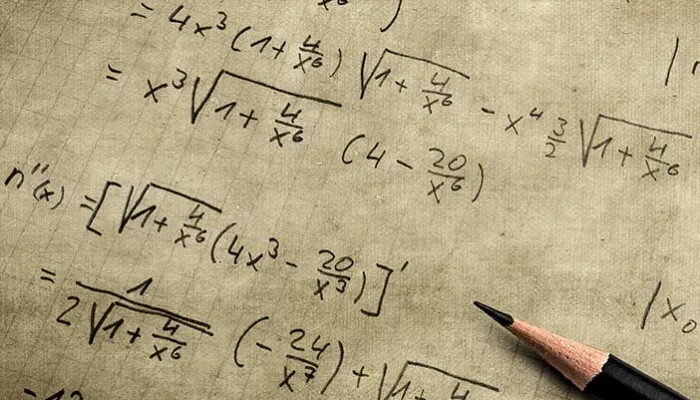 x⁶ )
= 4x³ (1 + 4/x⁶) √(1 + 4/x⁶) − x⁴ 3/2 √(1 + 4/x⁶)
= x³ √(1 + 4/x⁶) (4 − 20/x⁶)
n''(x) = [√(1 + 4/x⁶) (4x³ − 20/x³)]'
= 1/(2√(1 + 4/x⁶)) (− 24/x⁷) + √(1 + 4
|x₀